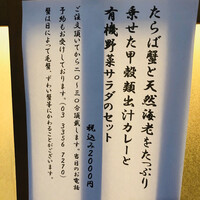 たらば蟹と天然海老をたっぷり
乗せた甲殻類出汁カレーと
有機野菜サラダのセット
税込み2000円
ご注文頂いてから二〇〜三〇分頂戴します。当日のお電話
予約もお受けしております。(03 3356 7270)
蟹は日によって毛蟹、ずわい蟹等にかわることがございます。